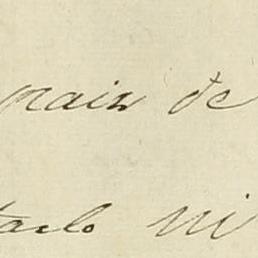 main de
tarlo ni